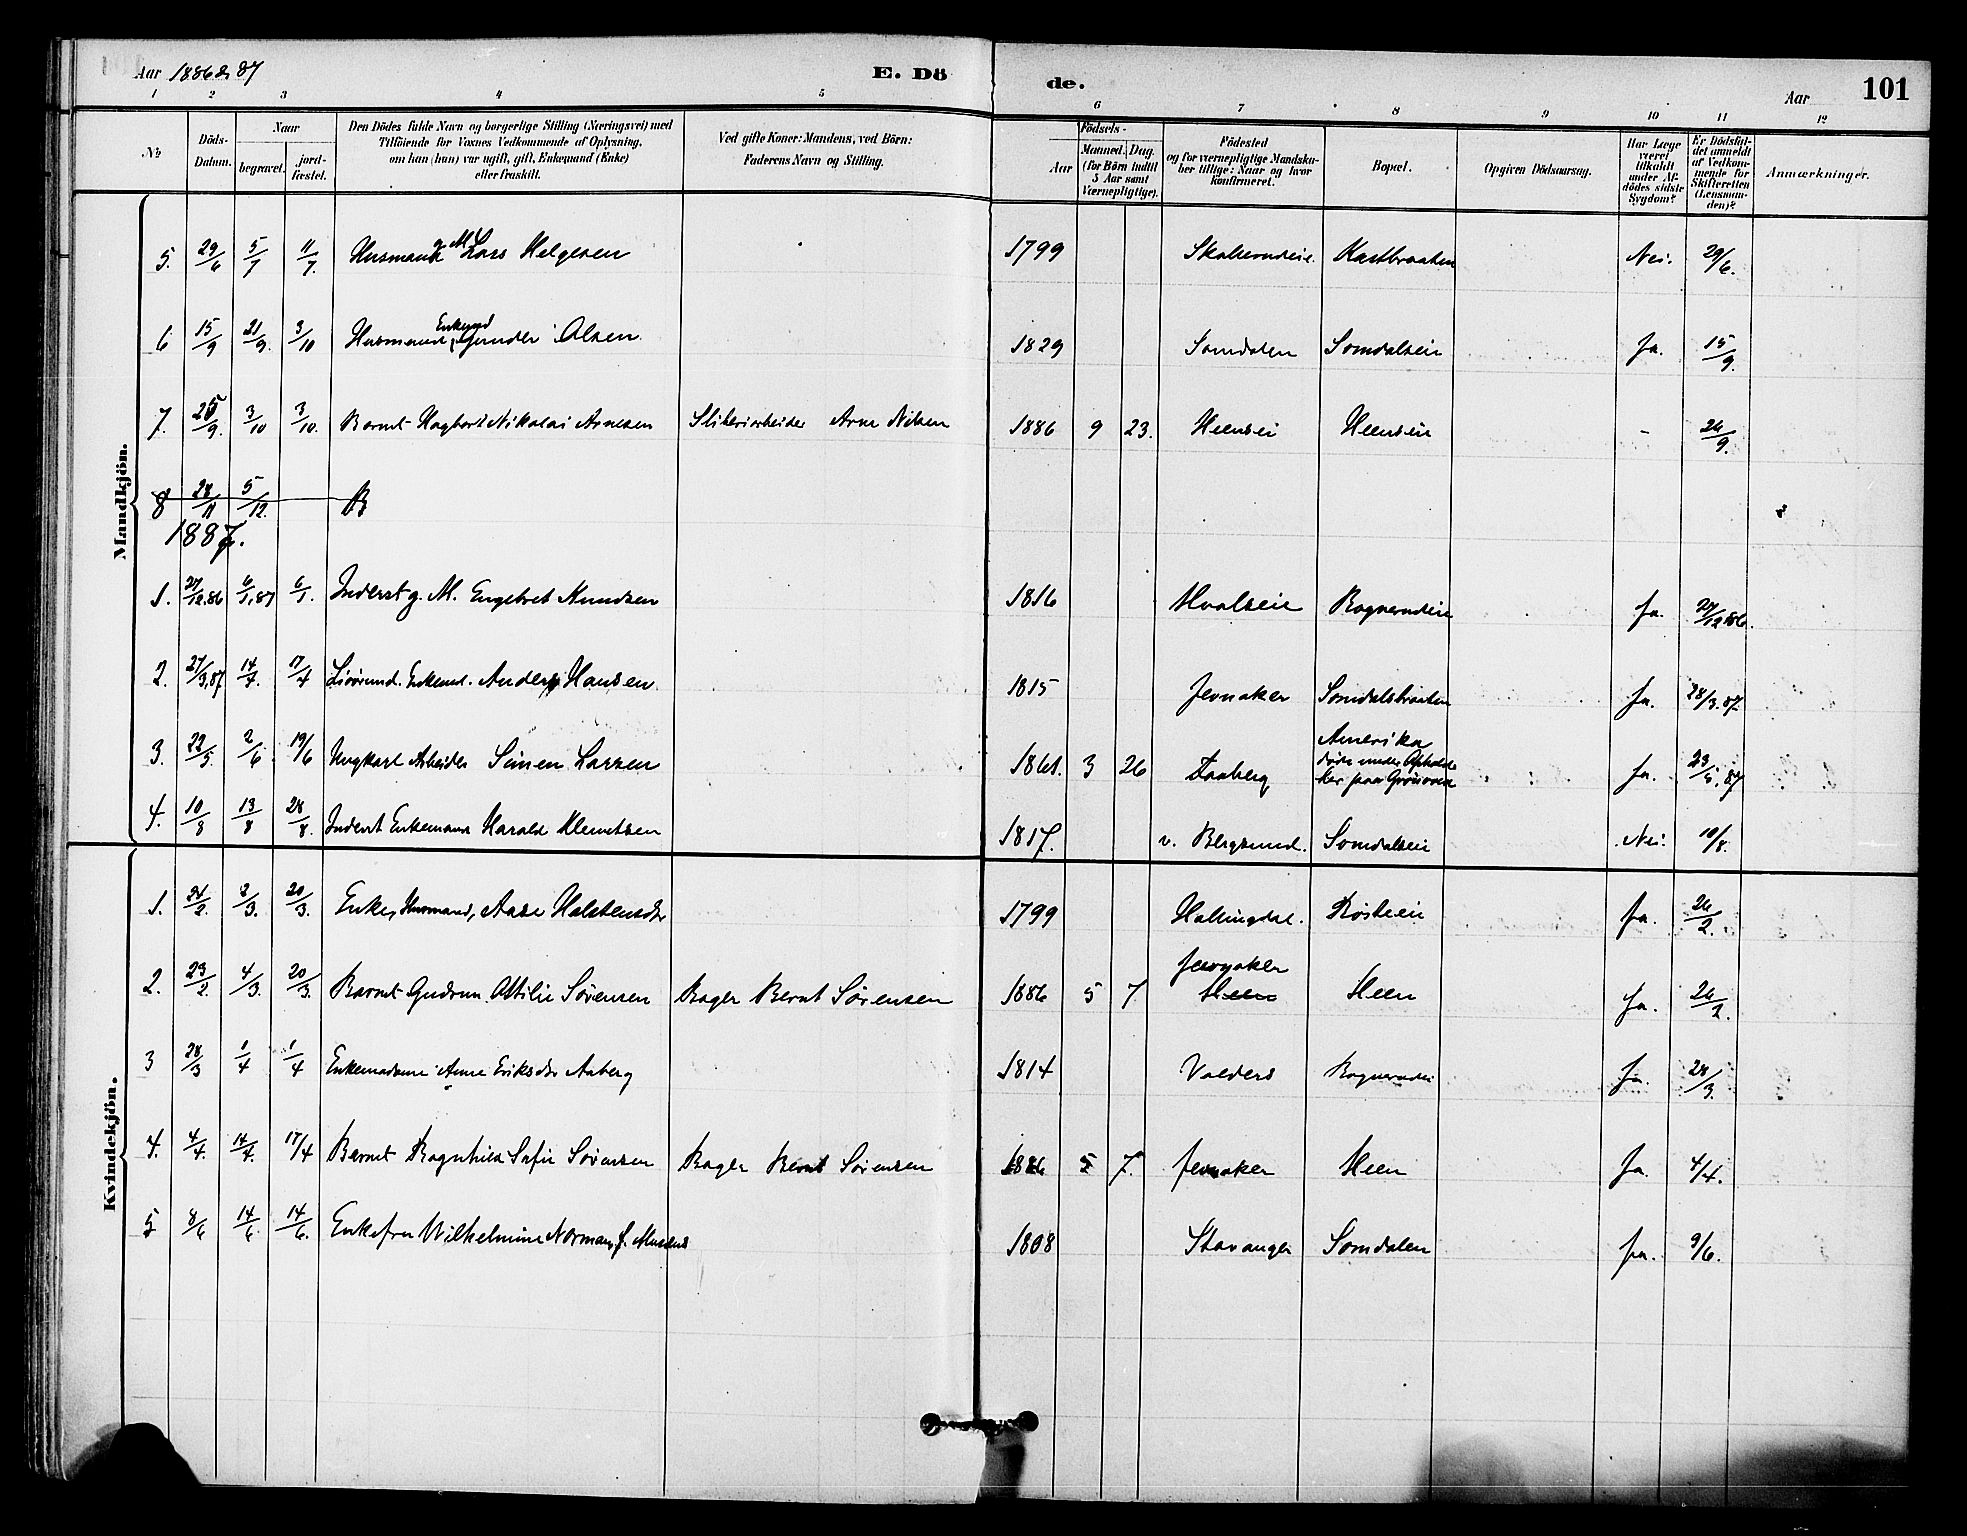 Aar 1886 & 87
E. Dö de.
Aar
101
1 2 3 4 5 6 7 8 9 10 11 12
No
Döds-Datum.
Naar
begravet.
jordfæstet.
Den Dödes fulde Navn og borgerlige Stilling (Næringsvei) med Tilföiende for Voxnes Vedkommende af Oplysning, om han (hun) var ugift, gift, Enkemand (Enke) eller fraskilt.
Ved gifte Koner: Mandens, ved Börn: Faderens Navn og Stilling.
Födsels-
Aar
Maaned. Dag.
(for Börn indtil 5 Aar samt Værnepligtige).
Födested og for værnepligtige Mandskaber tillige: Naar og hvor konfirmeret.
Bopæl.
Opgiven Dödsaarsag.
Har Læge været tilkaldt under Afdödes sidste Sygdom?
Er Dödsfaldet anmeldt af Vedkommende for Skifteretten (Lensmanden)?
Anmærkninger.
Mandkjön.
5. 29/6 5/7 11/7. Husmand g. M. Lars Helgesen 1799 Skollerudeie. Kastbraaten Nei. 29/6.
6 15/9 21/9. 3/10 Husmand, Enkemd Gunder Olsen. 1829 Somdalen Somdalseie Ja. 15/9.
7. 25/9. 3/10 3/10. Barnet Hagbart Nikolai Arnesen Sliberiarbeider Arne Nilsen 1886 9 23. Heensei Heenseie - 26/9.
8 28/11 5/12. B
1887.
1. 27/12.86 6/1,87 6/1. Inderst g. M. Engebret Knudsen 1816 Hvalseie Ragnerudeie Ja. 27/12 86.
2. 27/3,87 14/4. 17/4 Enkemd. Anders Hansen. 1815 Jevnaker Somdalsbraaten Ja. 28/3.87.
3. 22/5. 2/6. 19/6 Ungkarl Arbeider Simen Larsen 1861. 3 26 Faaberg Amerika döde under Ophold her paa Ja. 23/5.87
4. 10/8 13/8 28/8. Inderst Enkemand Harald Klemetsen 1817. v. Bergsund. Somdalseie Nei. 10/8.
Kvindekjön.
1. 24/2. 2/3. 20/3. Enke, Husmand, Aase Halstensdtr 1799 Hallingdal. Ja. 26/2.
2. 23/2. 4/3. 20/3. Barnet Gudrun Ottilie Sørensen Bager Bernt Sørensen 1886 5 7. Jevnaker Heen Heen Ja. 26/2.
3 28/3 1/4 1/4 Enkemadame Anne Eriksdtr Aaberg 1814 Valders Ragnerudei Ja. 28/3.
4. 4/4. 14/4. 17/4 Barnet Ragnhild Sofie Sørensen Bager Bernt Sørensen 1886 5 7. Jevnaker Heen Ja. 4/4.
5 8/6 14/6. 14/6. Enkefru Wilhelmine Norman, f. 1808 Stavanger Somdalen Ja. 9/6.